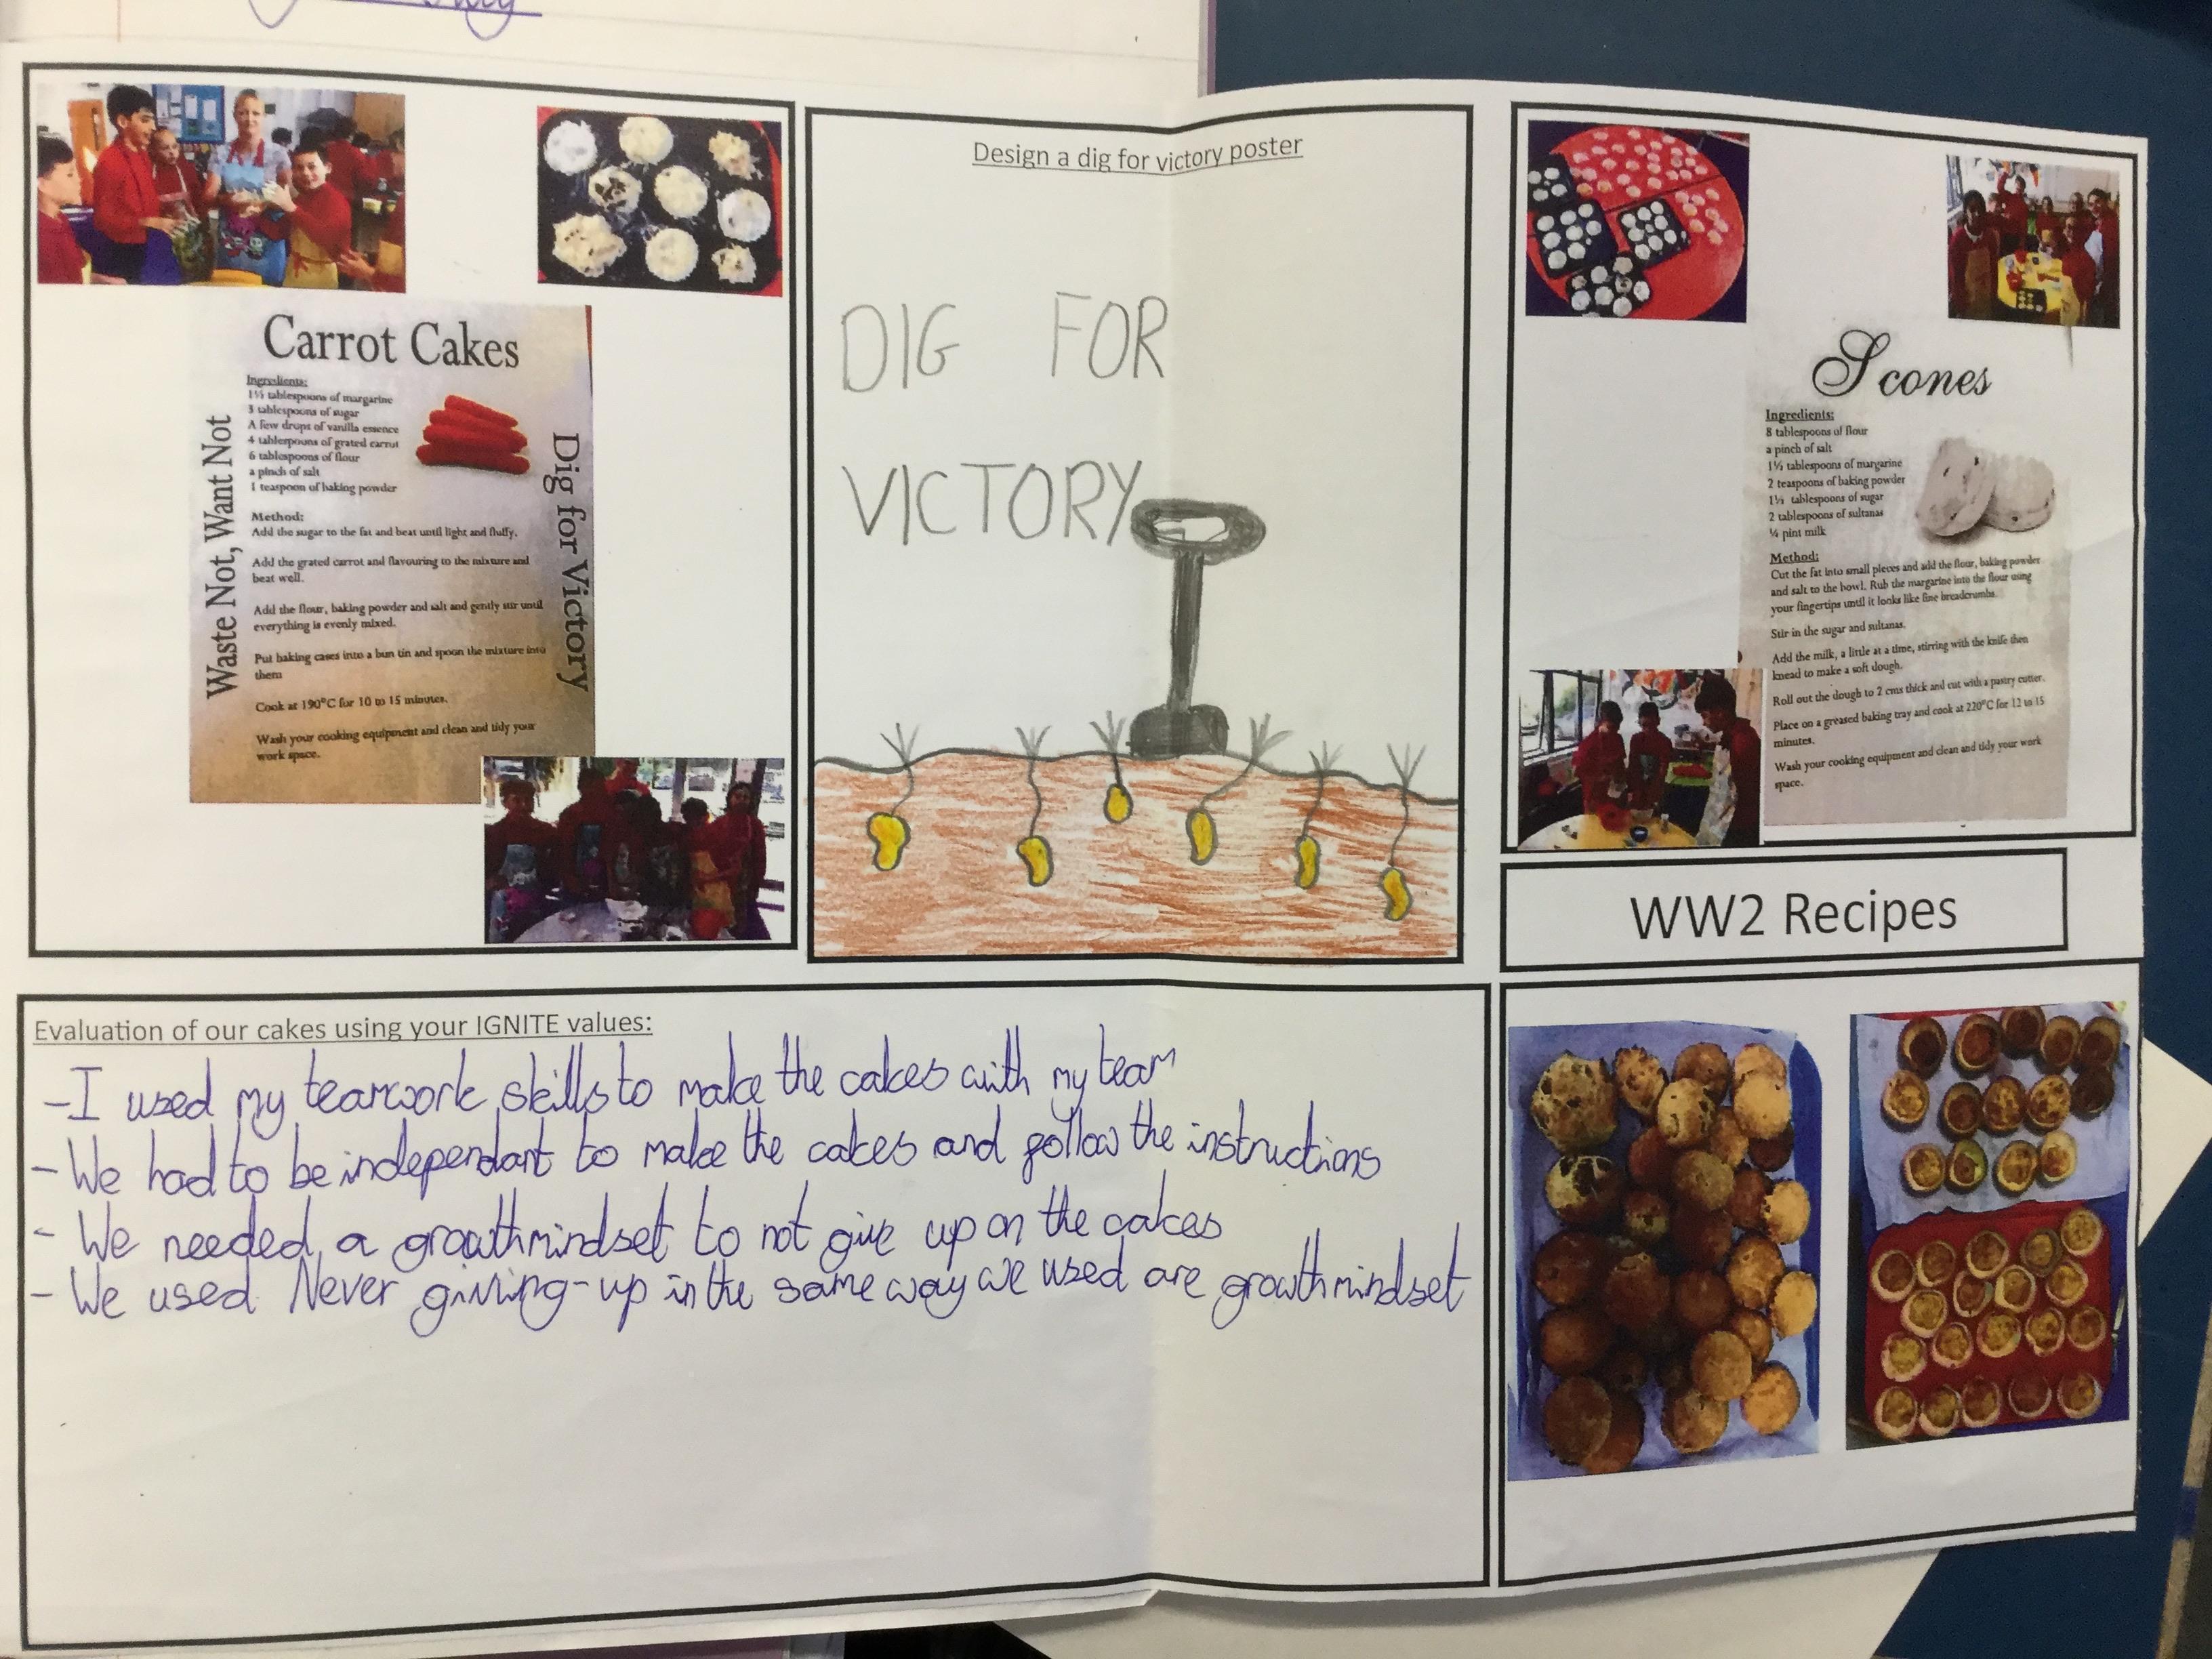 Carrot Cakes
Waste Not, Want Not
Dig for Victory
Ingredients:
1½ tablespoons of margarine
3 tablespoons of sugar
A few drops of vanilla essence
4 tablespoons of grated carrot
6 tablespoons of flour
a pinch of salt
1 teaspoon of baking powder
Method:
Add the sugar to the fat and beat until light and fluffy.
Add the grated carrot and flavouring to the mixture and
beat well.
Add the flour, baking powder and salt and gently stir until
everything is evenly mixed.
Put baking cases into a bun tin and spoon the mixture into
them
Cook at 190°C for 10 to 15 minutes.
Wash your cooking equipment and clean and tidy your
work space.
Design a dig for victory poster
DIG FOR
VICTORY
Scones
Ingredients:
8 tablespoons of flour
a pinch of salt
1½ tablespoons of margarine
2 teaspoons of baking powder
1½ tablespoons of sugar
2 tablespoons of sultanas
¼ pint milk
Method:
Cut the fat into small pieces and add the flour, baking powder
and salt to the bowl. Rub the margarine into the flour using
your fingertips until it looks like fine breadcrumbs.
Stir in the sugar and sultanas.
Add the milk, a little at a time, stirring with the knife then
knead to make a soft dough.
Roll out the dough to 2 cms thick and cut with a pastry cutter.
Place on a greased baking tray and cook at 220°C for 12 to 15
minutes.
Wash your cooking equipment and clean and tidy your work
space.
WW2 Recipes
Evaluation of our cakes using your IGNITE values:
- I used my teamwork skills to make the cakes with my team
- We had to be independant to make the cakes and follow the instructions
- We needed a growth mindset to not give up on the cakes
- We used Never giving-up in the same way we used are growth mindset